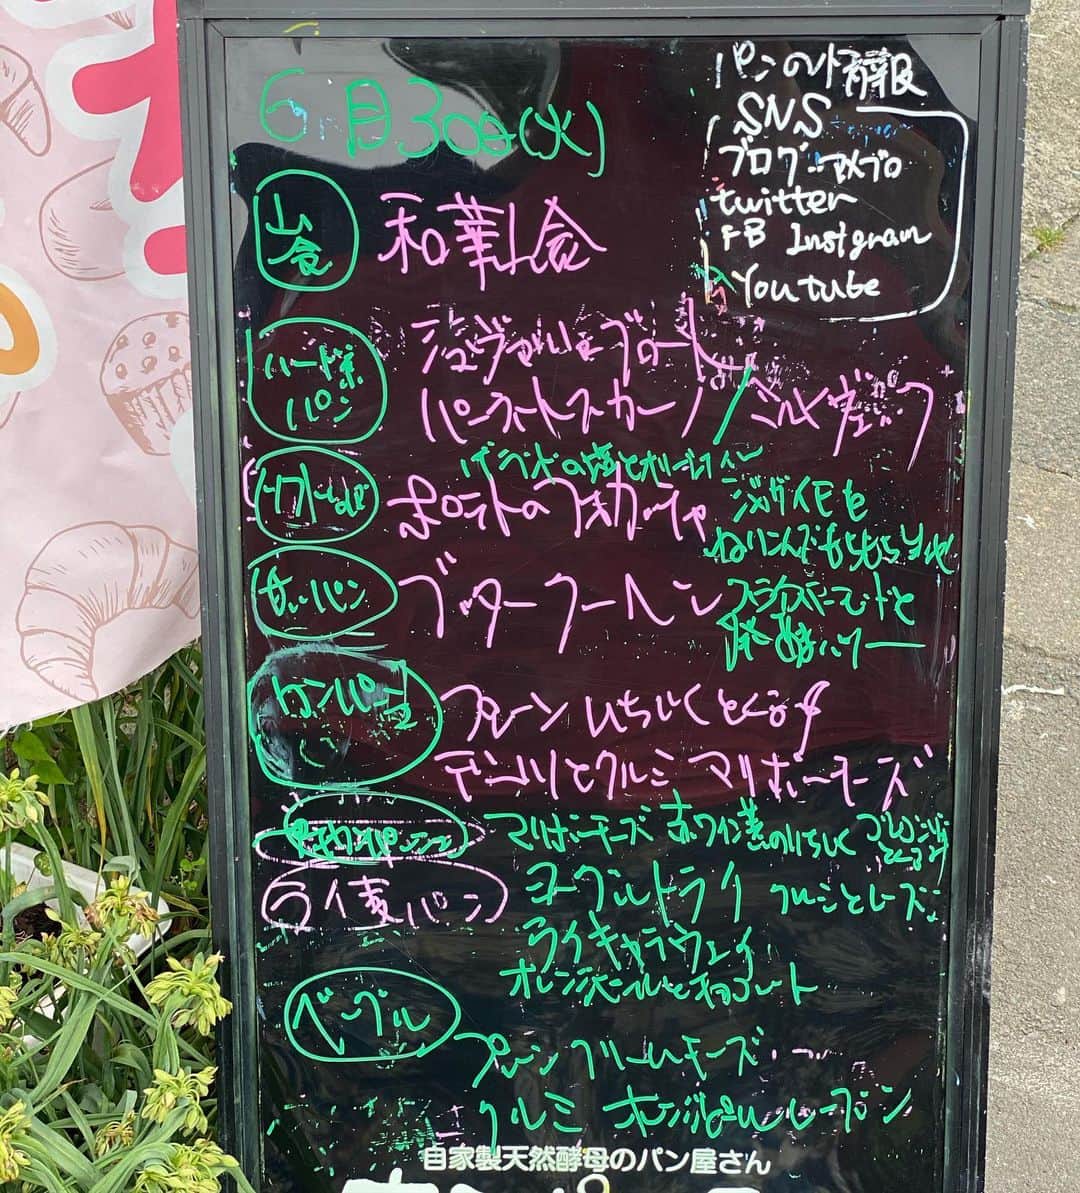 6月30日(火)
パンのト情報
SNS
ブログ アメブロ
twitter
FB Instgram
Youtube
山食
和華山食
ハード系
パン
ブロート
ミルヴェック
ゲランドの塩とオリーブオイル
ポテトのフォカッチャ
ジャガイモを
ねりこんだもちもち生地
甘いパン
ブッタークーヘン
カンパーニュ
プレーン いちじくとくるみ
とクルミ マリボーチーズ
マリボーチーズ 赤ワイン煮のいちじく
ライ麦パン
ヨーグルトライ クルミとレーズン
ライキャラウェイ
オレンジピールとチョコレート
ベーグル
プレーン クリームチーズ
クルミ オレンジピール レーズン
自家製天然酵母のパン屋さん